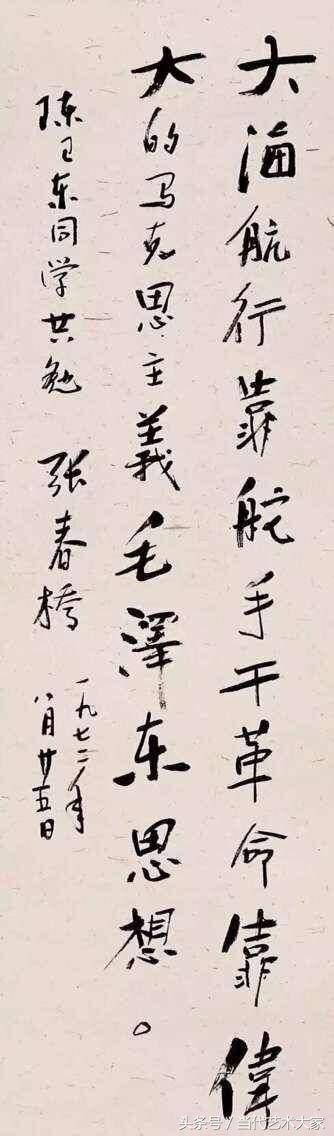 大海航行靠舵手干革命靠偉
大的马克思主義毛澤东思想。
陈卫东同学共勉 张春橋
一九七二年
八月廿五日
头条号 / 当代艺术大家